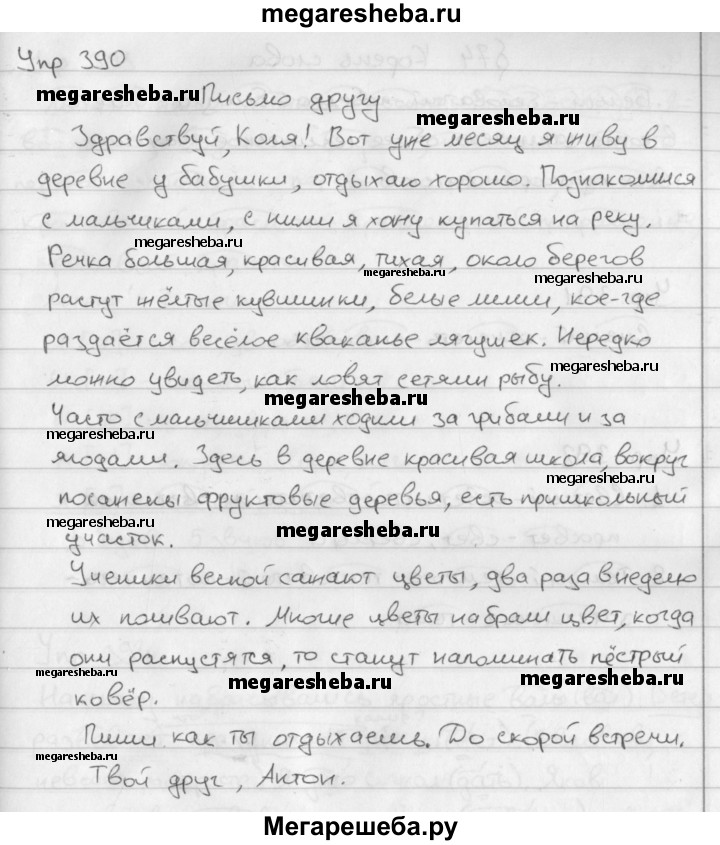 megaresheba.ru
Упр 390
megaresheba.ru Письмо другу megaresheba.ru
Здравствуй, Коля! Вот уже месяц я живу в
деревне у бабушки, отдыхаю хорошо. Познакомился
с мальчиками, с ними я хожу купаться на реку.
megaresheba.ru
Речка большая, красивая, тихая, около берегов
megaresheba.ru megaresheba.ru
растут жёлтые кувшинки, белые лилии, кое-где
раздаётся весёлое кваканье лягушек. Нередко
megaresheba.ru
можно увидеть, как ловят сетями рыбу.
megaresheba.ru
Часто с мальчишками ходили за грибами и за
megaresheba.ru
ягодами. Здесь в деревне красивая школа, вокруг
megaresheba.ru
посажены фруктовые деревья, есть пришкольный
megaresheba.ru megaresheba.ru
участок.
Ученики весной сажают цветы, два раза в неделю
их поливают. Многие цветы набрали цвет, когда
они распустятся, то станут напоминать пёстрый
megaresheba.ru megaresheba.ru megaresheba.ru
ковёр.
Пиши как ты отдыхаешь. До скорой встречи.
megaresheba.ru megaresheba.ru
Твой друг, Антон.
Мегарешеба.ру